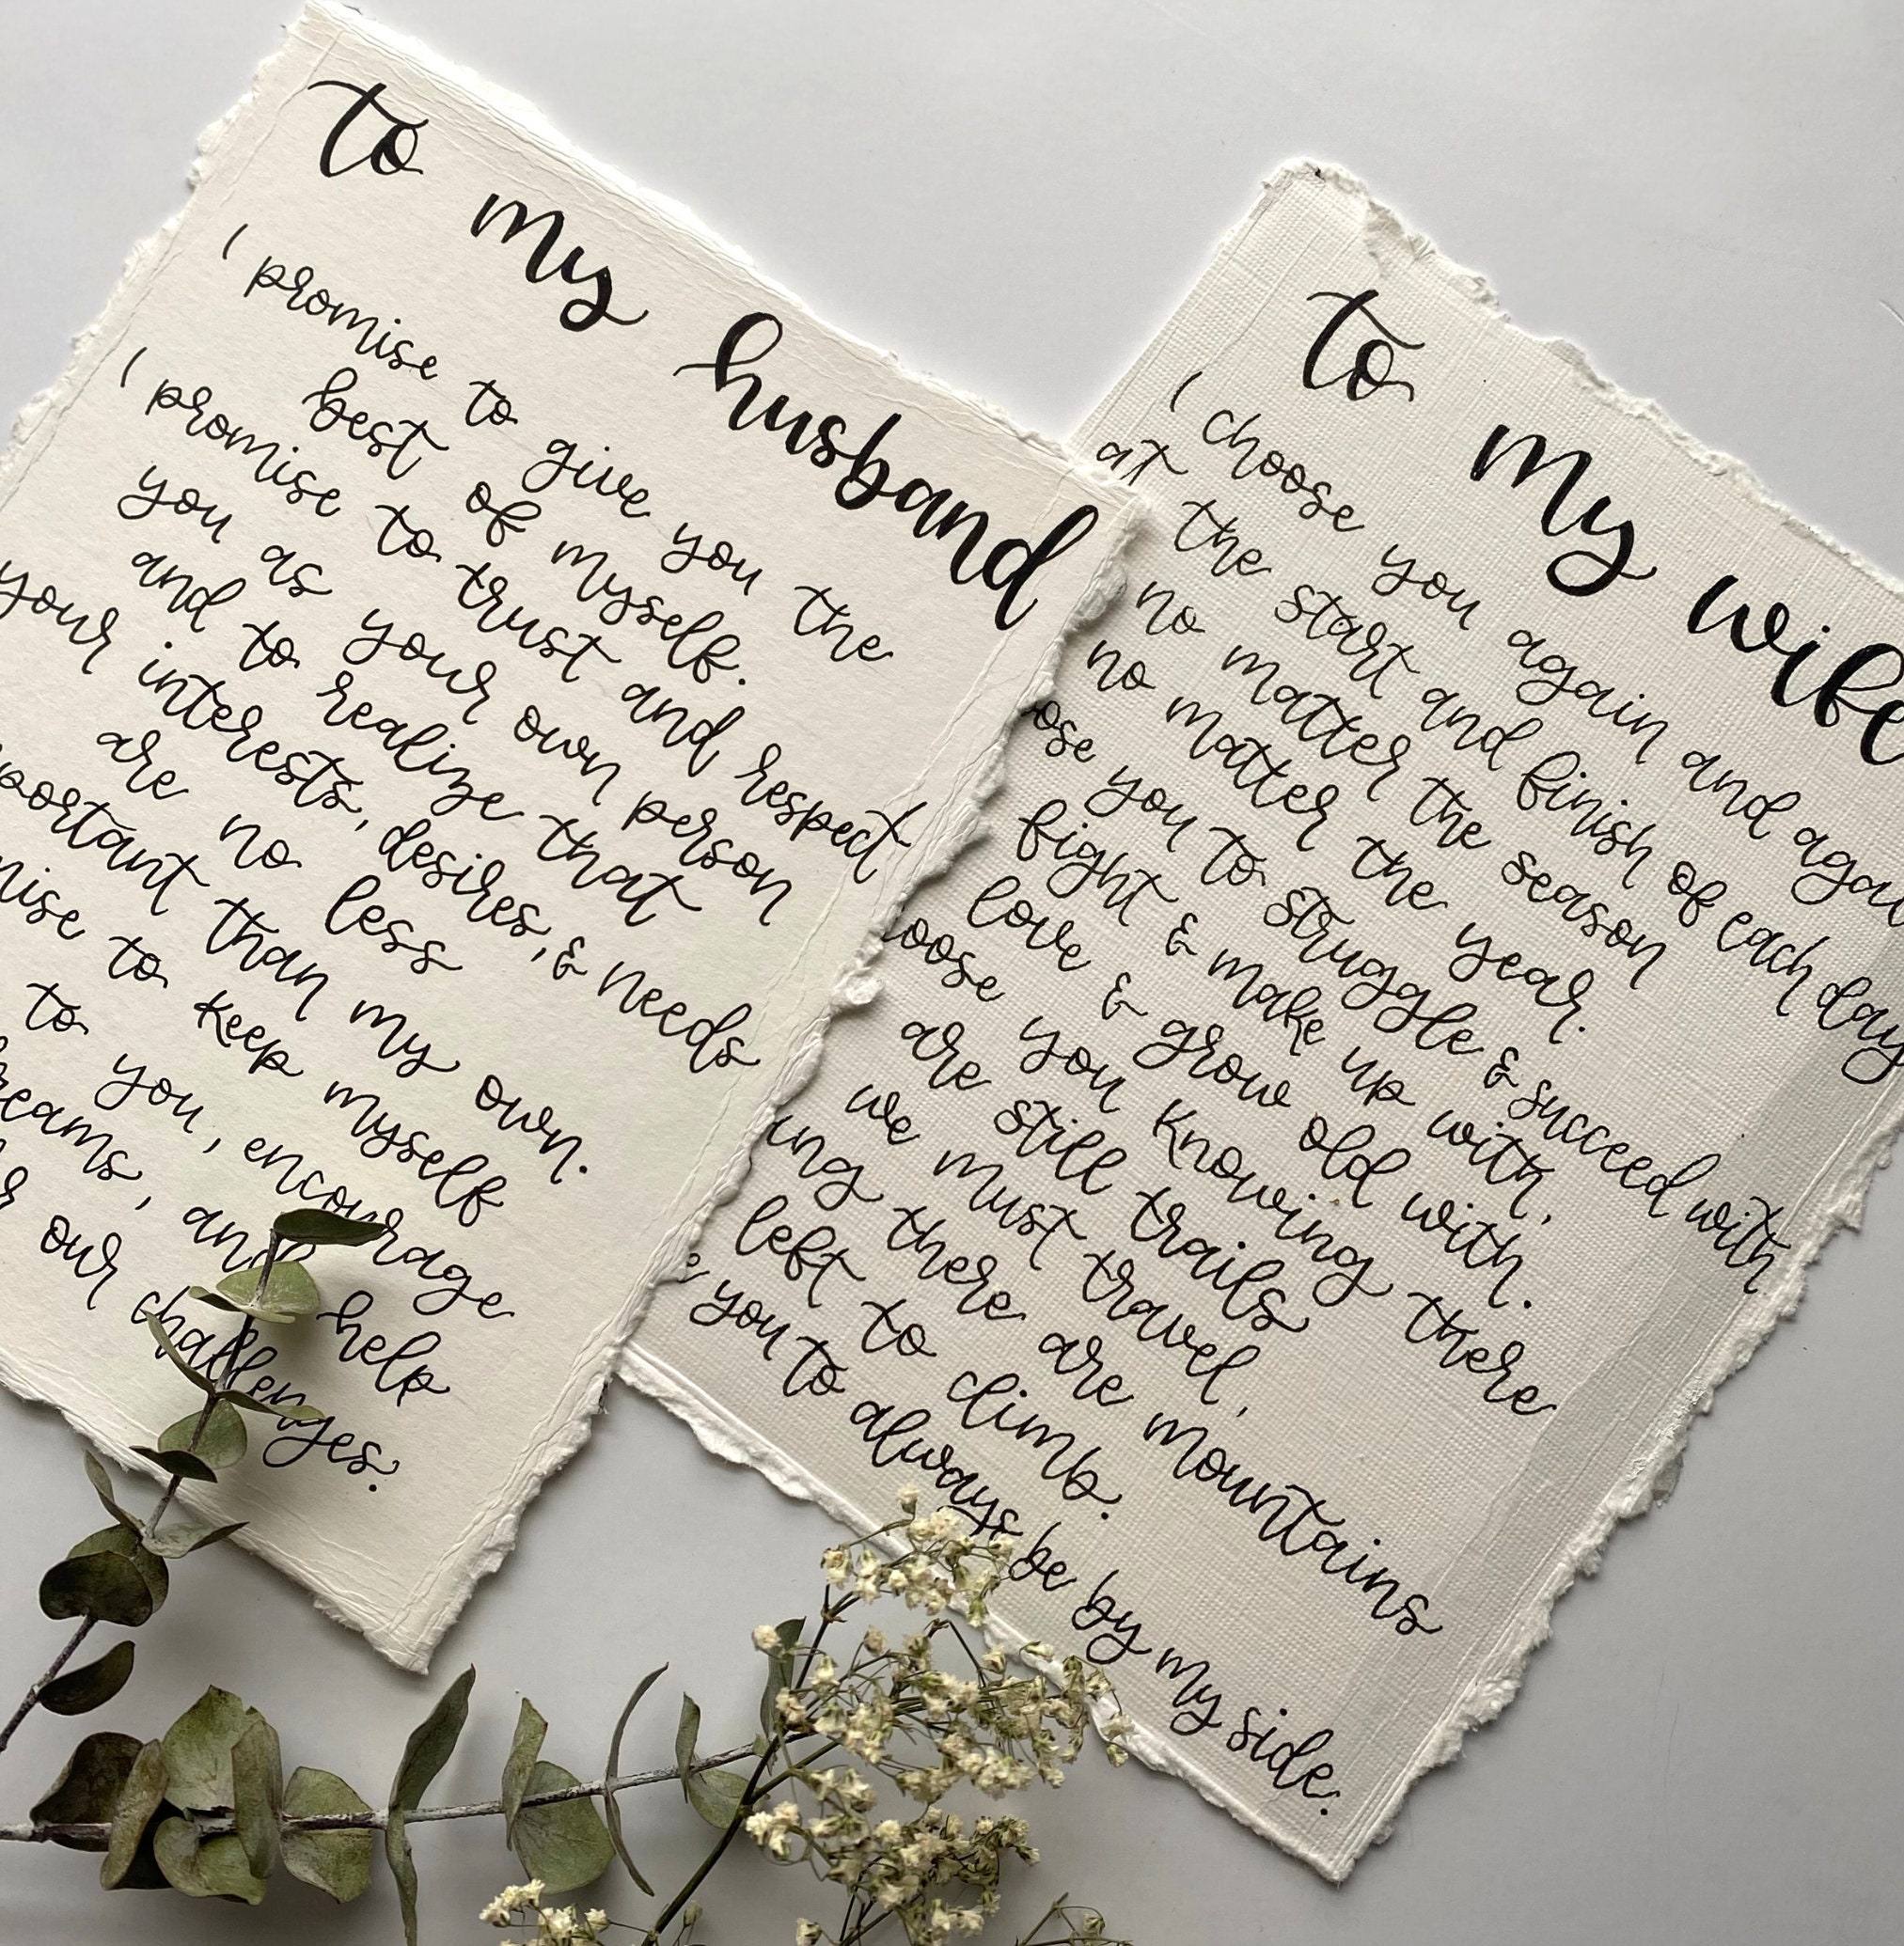 to my husband
I promise to give you the
best of myself.
I promise to trust and respect
you as your own person
and to realize that
your interests, desires, & needs
are no less
portant than my own.
mise to keep myself
to you, encourage
reams, and help
our challenges.
to my wife
I choose you again and again
at the start and finish of each day
no matter the season
no matter the year.
ose you to struggle & succeed with
fight & make up with,
love & grow old with.
oose you knowing there
are still trails
we must travel,
ing there are mountains
left to climb.
e you to always be by my side.